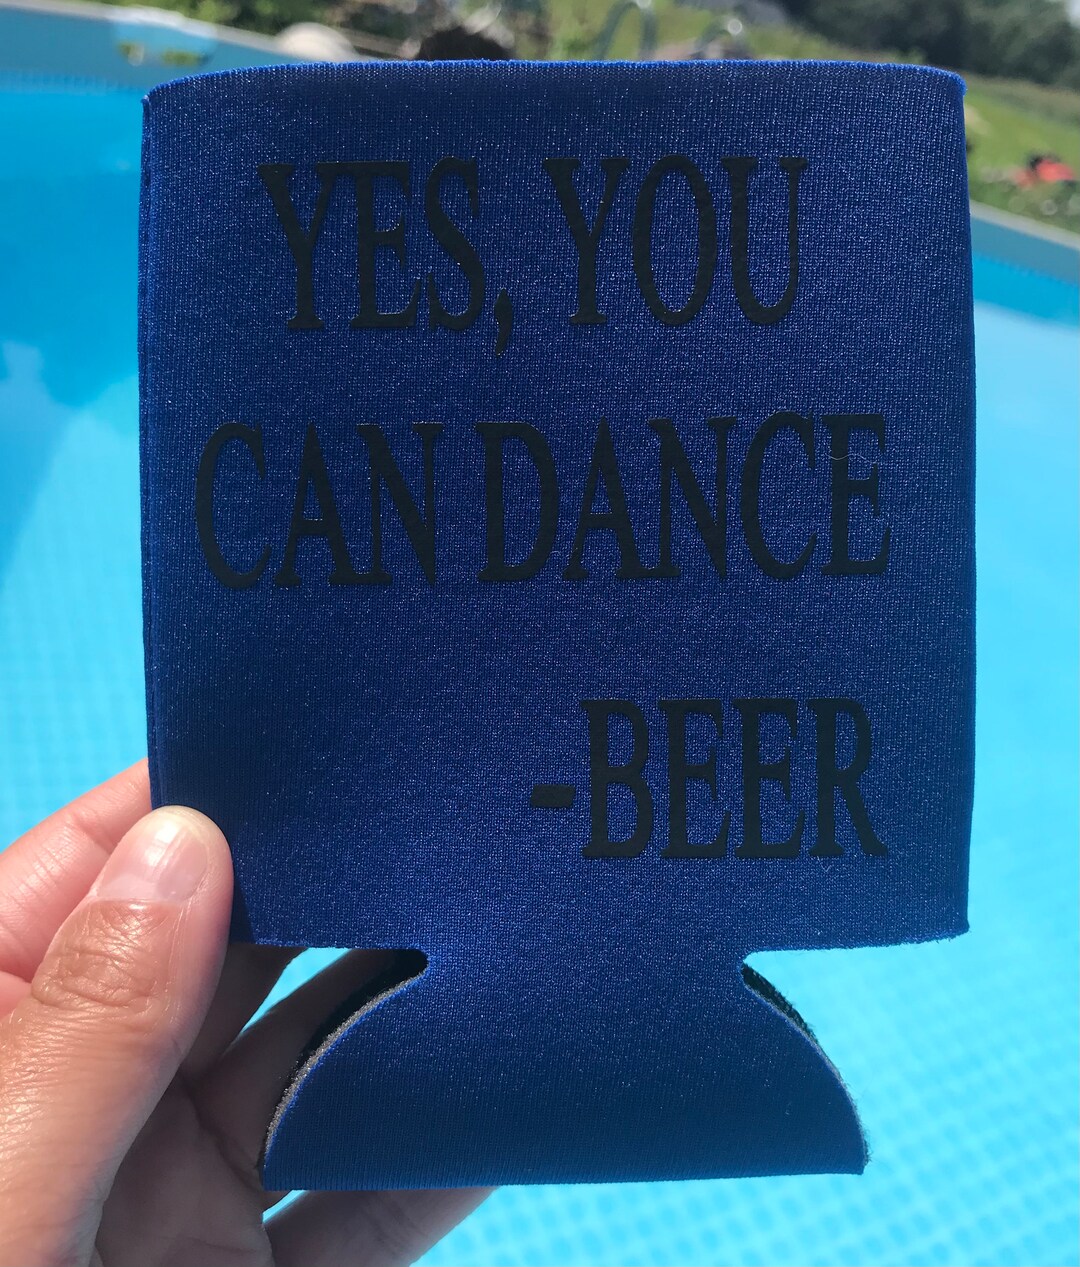 YES, YOU
CAN DANCE
-BEER